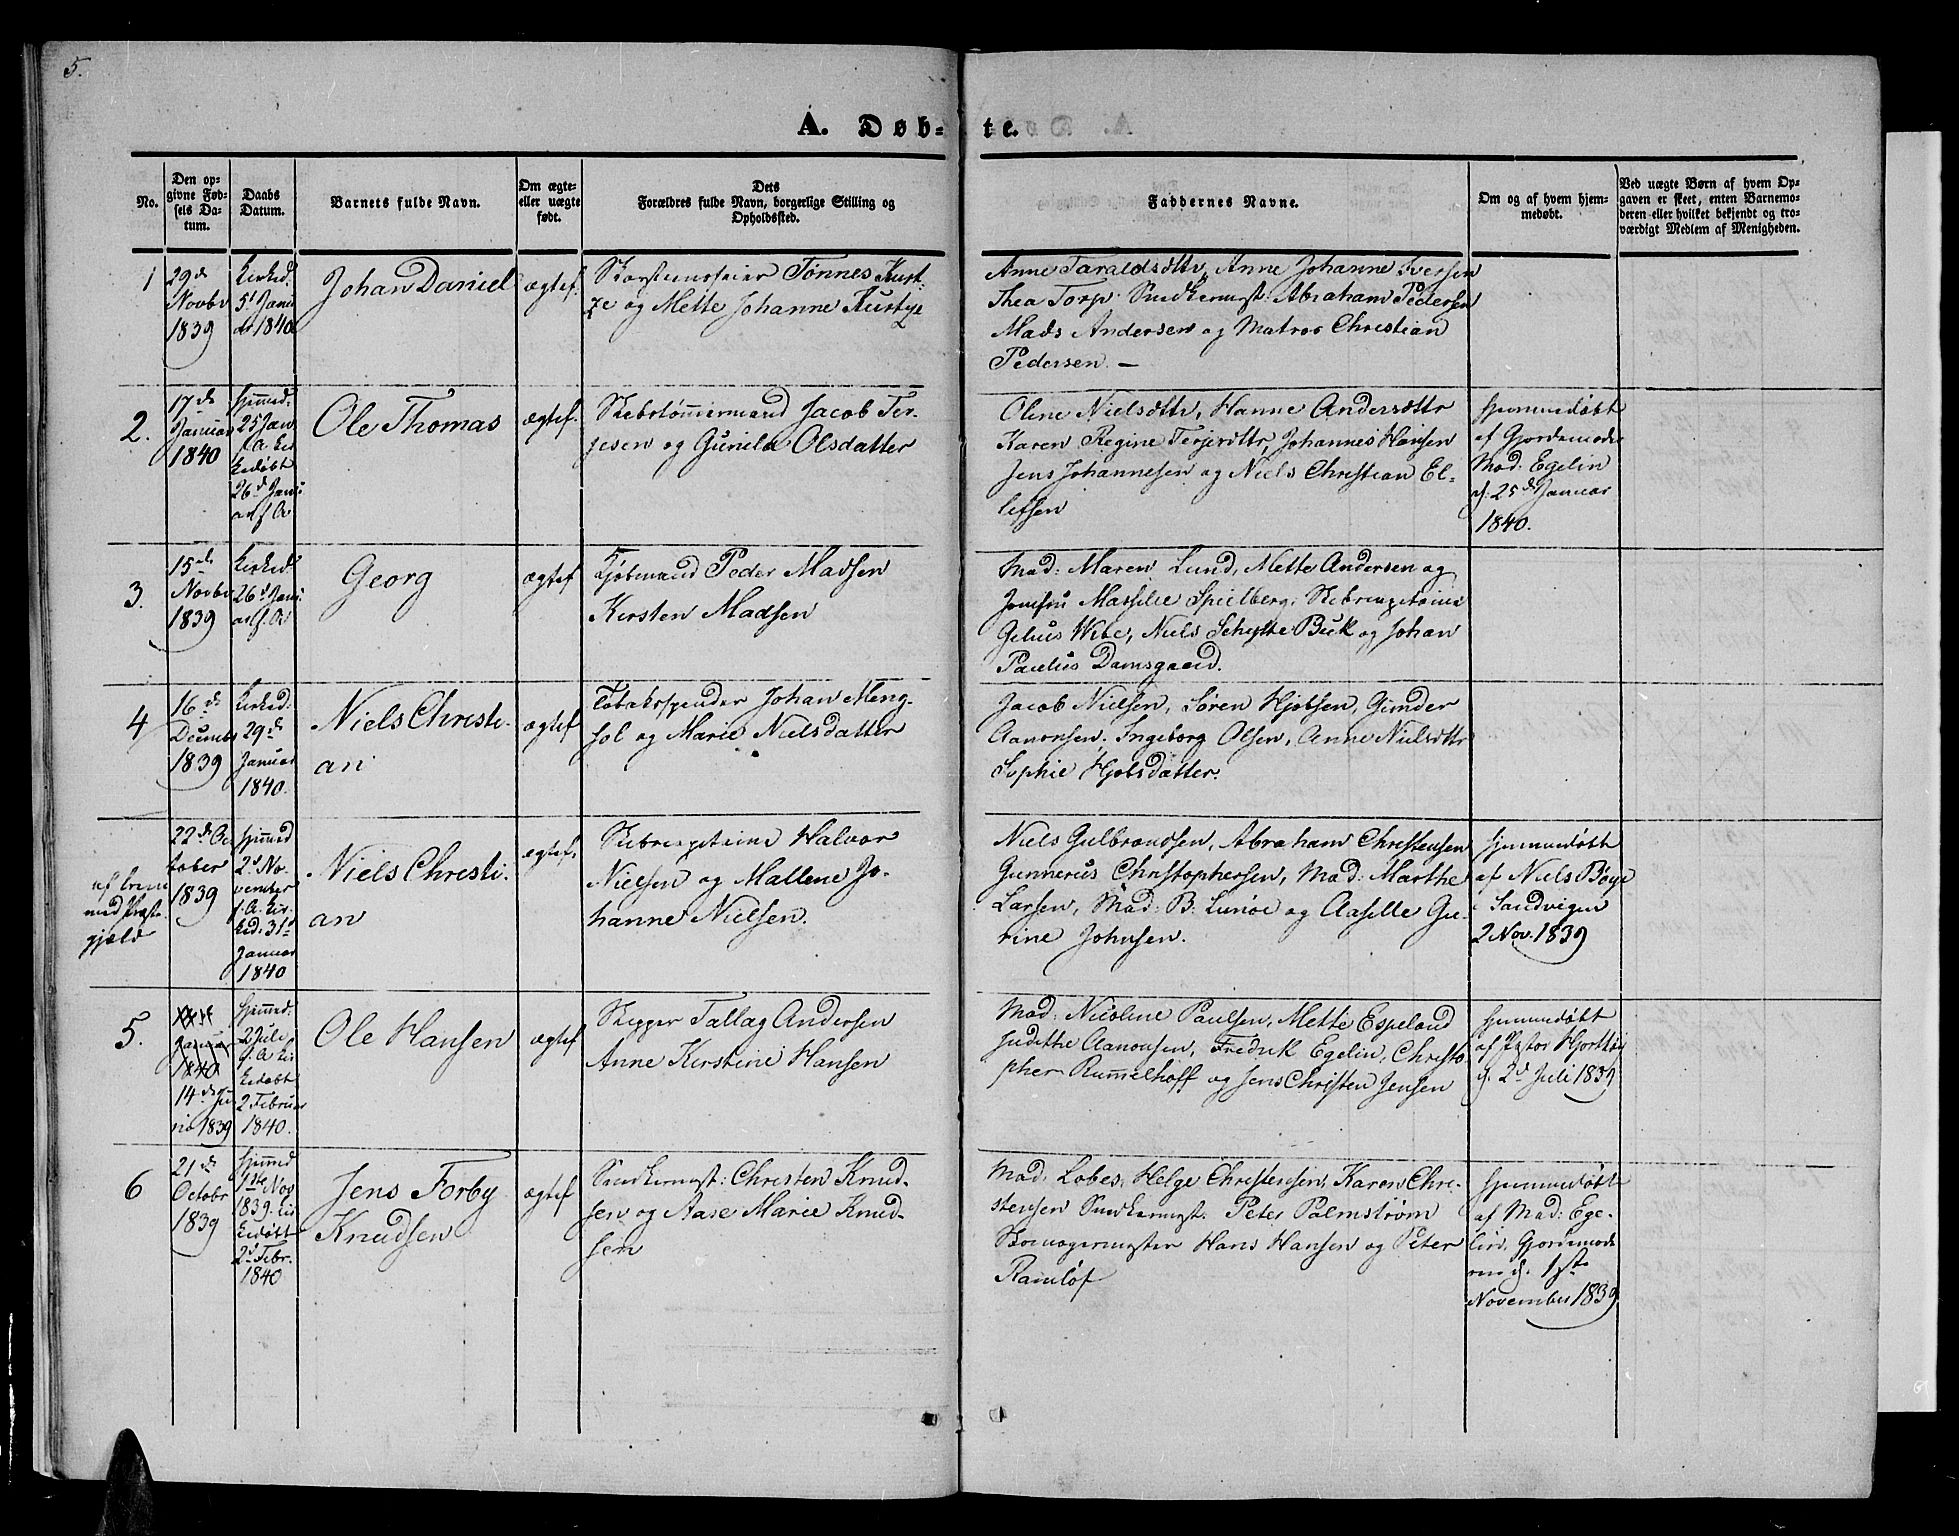 5.
A. Døb-
te.
No.
Den op-
givne Fød-
sels Da-
tum.
Daabs
Datum.
Barnets fulde Navn.
Om ægte-
eller uægte
født.
Dets
Forældres fulde Navn, borgerlige Stilling og
Opholdssted.
Faddernes Navne.
Om og af hvem hjem-
medøbt.
Ved uægte Børn af hvem Op-
gaven er skeet, enten Barnemo-
deren eller hvilket bekjendt og tro-
værdigt Medlem af Menigheden.
1
29de
Novbr
1839
Kirked:
5t Janu
ar 1840
Johan Daniel
ægtef.
Skorstensfeier Tønnes Kust-
ze og Mette Johanne Kustze
Anne Taraldsdttr, Anne Johanne Iversen
Thea Torp. Snedkermst: Abraham Pedersen
Mads Andersen og Matros Christian
Pedersen. —
2.
17de
Januar
1840
Hjemmed:
25 Jan
f. A. Kir
kedøbt
26de Janu
ar f. A
Ole Thomas
ægtef.
Skibstømmermand Jacob Ter-
jesen og Gunila Olsdatter
Oline Nielsdttr, Hanne Andersdttr
Karen Regine Terjesdttr, Johannes Hansen
Jens Johannesen og Niels Christian El-
lefsen
Hjemmedøbt
af Gjordemoder
Mad: Egelin
d. 25de Januar
1840.
3.
15de
Novbr
1839
Kirked:
26d Janu
ar f. A
Georg
ægtef
Kjøbmand Peder Madsen
Kirsten Madsen
Mad: Maren Lund, Mette Andersen og
Jomfru Massilie Spielberg; Skibscapitaine
Gelius Wibe, Niels Schytte Buck og Johan
Paulus Damsgaard.
4
16de
Decembr
1839
Kirked:
29de
Januar
1840.
Niels Christi-
an
ægtef
Tobaksspinder Johan Meng-
sol og Marie Nielsdatter
Jacob Nielsen, Søren Hjobsen, Gunder
Aanonsen, Ingeborg Olsen, Anne Nielsdttr
Sophie Hjobsdatter.
gjæld
22de Oc
tober
1839
Hjemmed
2d No-
vember
f. A. Kir
ked. 31d
Januar
1840
Niels Christi-
an
ægtef.
Skibscapitaine Halvor
Nielsen og Mallene Jo-
hanne Nielsen.
Niels Gulbrandsen, Abraham Christensen
Gunnerus Christophersen, Mad: Marthe
Larsen, Mad: B: Lunøe og Aaselle Gu-
rine Johnsen.
Hjemmedøbt
af Niels Bøye
i Sandvigen
2 Nov. 1839
5.
Januar
1840
14de Ju
ni 1839
Hjemmed:
2 Juli
f. A Kir
kedøbt
2 Februar
1840.
Ole Hansen
ægtef
Skipper Tallag Andersen
Anne Kirstine Hansen
Mad: Nicoline Paulsen, Mette Espeland
Judithe Aanonsen, Fredrik Egelin, Christo-
pher Rummelhoff og Jens Christen Jensen
Hjemmedøbt
af Pastor
d. 2d Juli 1839
6
21de
Octobr
1839
Hjemmed
1ste Nov
1839. Kir
kedøbt
2d Febr.
1840
Jens Forby
Knudsen
ægtef
Snedkermst: Christen Knud-
sen og Aase Marie Knud-
sen
Mad: Lobes, Helge Christensen, Karen Chri-
stensen Snedkermst: Peter Palmstrøm
Skomagermester Hans Hansen og Peter
Ramløf
Hjemmedøbt
af Mad: Ege-
lin, Gjordemode
ren d. 1ste
November 1839